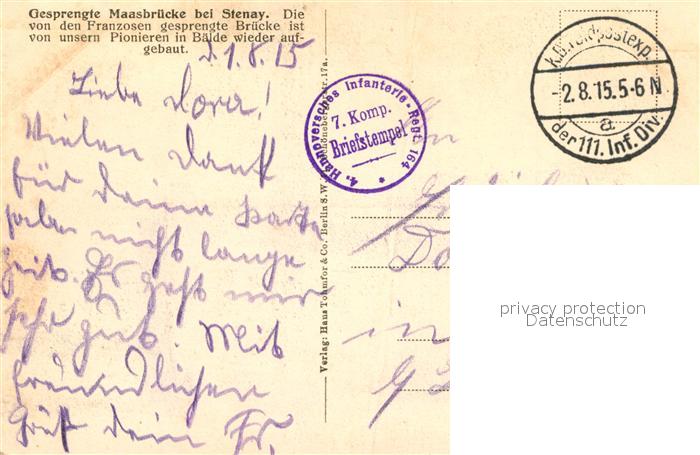 Gesprengte Maasbrücke bei Stenay. Die
von den Franzosen gesprengte Brücke ist
von unsern Pionieren in Bälde wieder auf-
gebaut.
d. 1.8.15
Liebe Dora!
Vielen Dank
für deine Karte
habe nicht lange
Zeit. Es geht mir
sehr gut. Mit
freundlichen
Gruß dein Fr.
Verlag: Hans Tohmfor & Co. Berlin S.W. Schönebergerstr. 17a.
4. Hannoversches Infanterie-Regt 164
7. Komp.
Briefstempel
K.D. Feldpostexp.
-2.8.15.5-6 N
a
der 111. Inf. Div.
An
in
privacy protection
Datenschutz